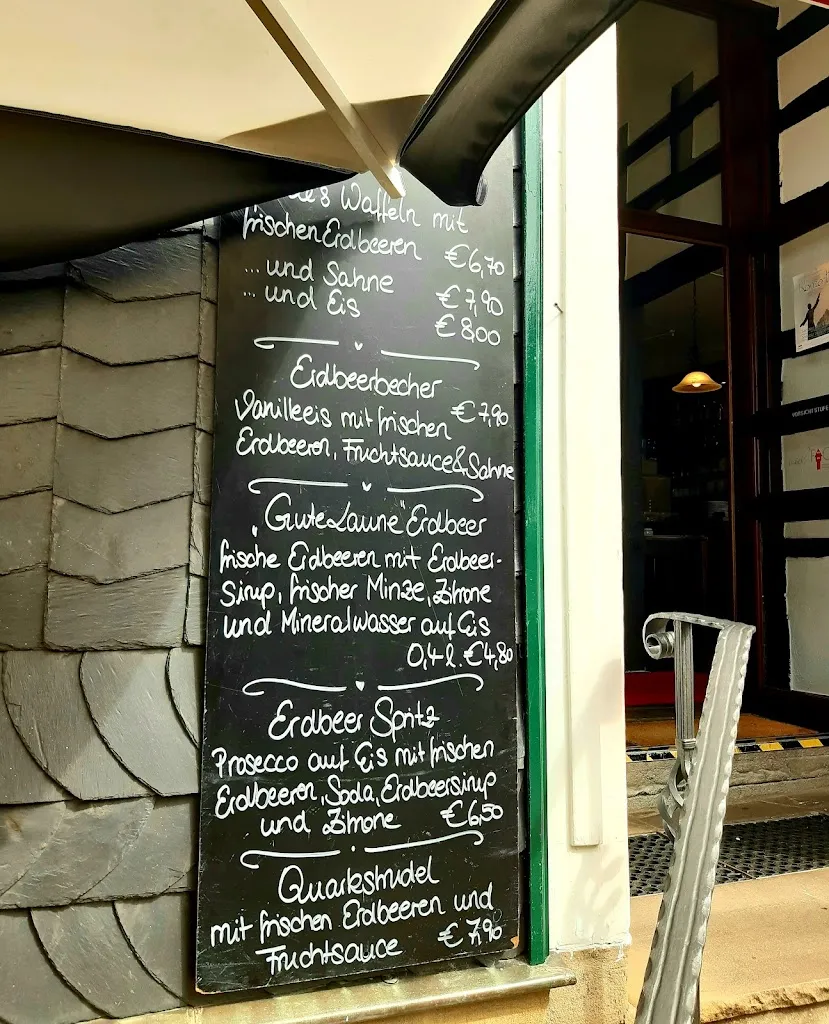 Waffeln mit
frischen Erdbeeren €6,70
... und Sahne €7,90
... und Eis €8,00
Erdbeerbecher
Vanilleeis mit frischen €7,90
Erdbeeren, Fruchtsauce & Sahne
„Gute Laune" Erdbeer
frische Erdbeeren mit Erdbeer-
Sirup, frischer Minze, Zitrone
und Mineralwasser auf Eis
0,4 l. €4,80
Erdbeer Spritz
Prosecco auf Eis mit frischen
Erdbeeren, Soda, Erdbeersirup
und Zitrone €6,50
Quarkstrudel
mit frischen Erdbeeren und
Fruchtsauce €7,90
VORSICHT STUFE